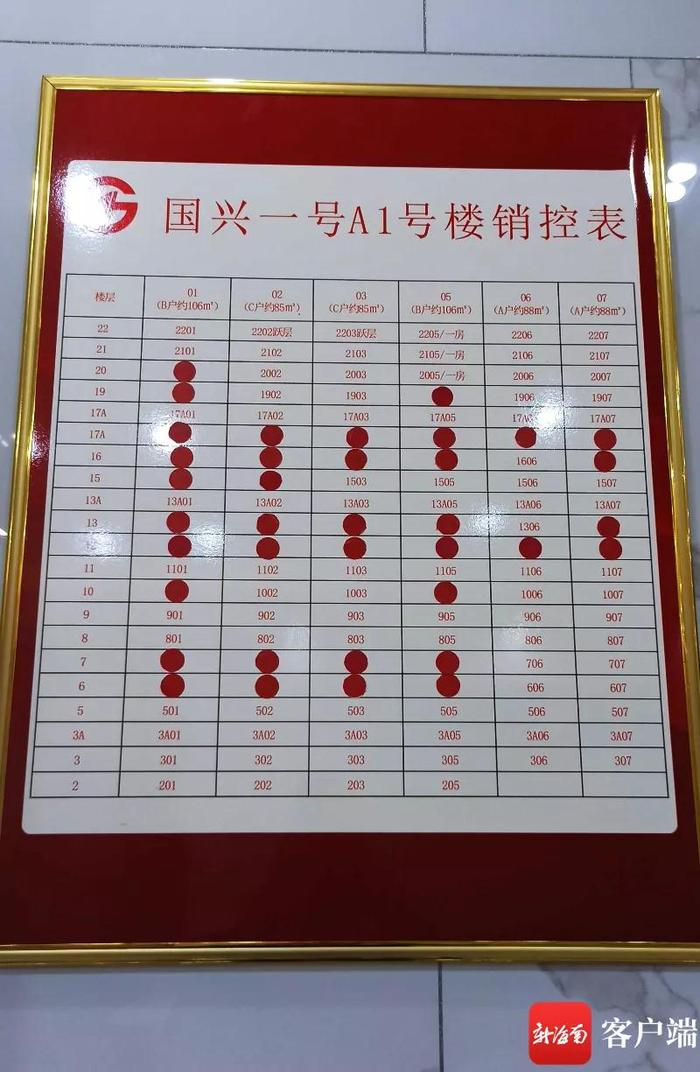 国兴一号A1号楼销控表
楼层 01 02 03 05 06 07
(B户约106㎡) (C户约85㎡) (C户约85㎡) (B户约106㎡) (A户约88㎡) (A户约88㎡)
22 2201 2202跃层 2203跃层 2205/一房 2206 2207
21 2101 2102 2103 2105/一房 2106 2107
20 2002 2003 2005/一房 2006 2007
19 1902 1903 1906 1907
17A 17A01 17A02 17A03 17A05 17A07
17A
16 1606
15 1503 1505 1506 1507
13A 13A01 13A02 13A03 13A05 13A06 13A07
13 1306
11 1101 1102 1103 1105 1106 1107
10 1002 1003 1006 1007
9 901 902 903 905 906 907
8 801 802 803 805 806 807
7 706 707
6 606 607
5 501 502 503 505 506 507
3A 3A01 3A02 3A03 3A05 3A06 3A07
3 301 302 303 305 306 307
2 201 202 203 205
新海南 客户端